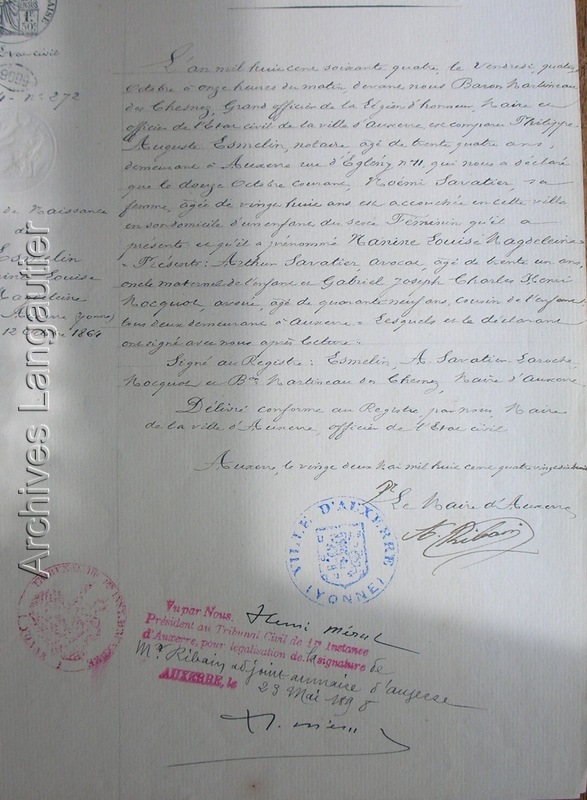 1F.
50c.
Etat civil
N° 272
de Naissance
de
Esmelin
Louise
Magdeleine
Auxerre (Yonne)
12 8bre 1864
L'an mil huit cent soixante quatre, le Vendredi quatorze
Octobre à onze heures du matin, devant nous Baron Martineau
des Chesnez, Grand officier de la Légion d'honneur, Maire et
officier de l'Etat civil de la ville d'Auxerre, est comparu Philippe
Auguste Esmelin, notaire âgé de trente quatre ans,
demeurant à Auxerre rue d'Eglény n° 11, qui nous a déclaré
que le douze Octobre courant, Noémi Savatier, sa
femme, âgée de vingt huit ans est accouchée en cette ville
en son domicile d'un enfant du sexe Féminin qu'il a
présenté et qu'il a prénommé Nanine Louise Magdeleine
- Présents : Arthur Savatier avocat, âgé de trente un ans,
oncle maternel de l'enfant et Gabriel Joseph Charles Henri
Nocquot, avoué, âgé de quarante neuf ans, cousin de l'enfant
tous deux demeurant à Auxerre - Lesquels et le déclarant
ont signé avec nous après lecture.
Signé au Registre : Esmelin, A. Savatier Laroche,
Nocquot et Bon Martineau des Chesnez, Maire d'Auxerre
Délivré conforme au Registre, par nous, Maire
de la ville d'Auxerre, officier de l'Etat civil
Auxerre, le vingt deux Mai mil huit cent quatre vingt dix huit
Pr. Le Maire d'Auxerre
Ribain
VILLE D'AUXERRE
(YONNE)
Vu par Nous, Henri
Président au Tribunal Civil de 1re Instance
d'Auxerre, pour légalisation de la signature de
Mr Ribain adjoint au maire d'Auxerre
AUXERRE, le 23 Mai 1898
Archives Langautier